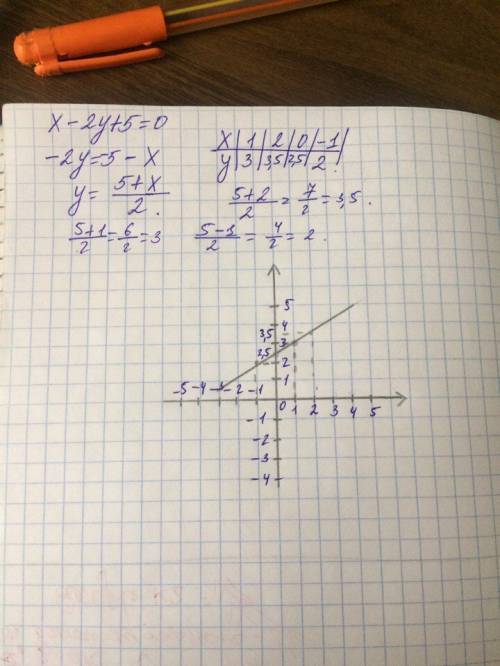 x-2y+5=0
-2y=5-x
y= 5+x/2.
x|1|2|0|-1|
y|3|3,5|2,5|2.
5+1/2=6/2=3
5+2/2=7/2=3,5.
5-1/2=4/2=2.
5
3,5 4
3
2,5 2
1
-5 -4 -2 -1 0 1 2 3 4 5
-1
-2
-3
-4